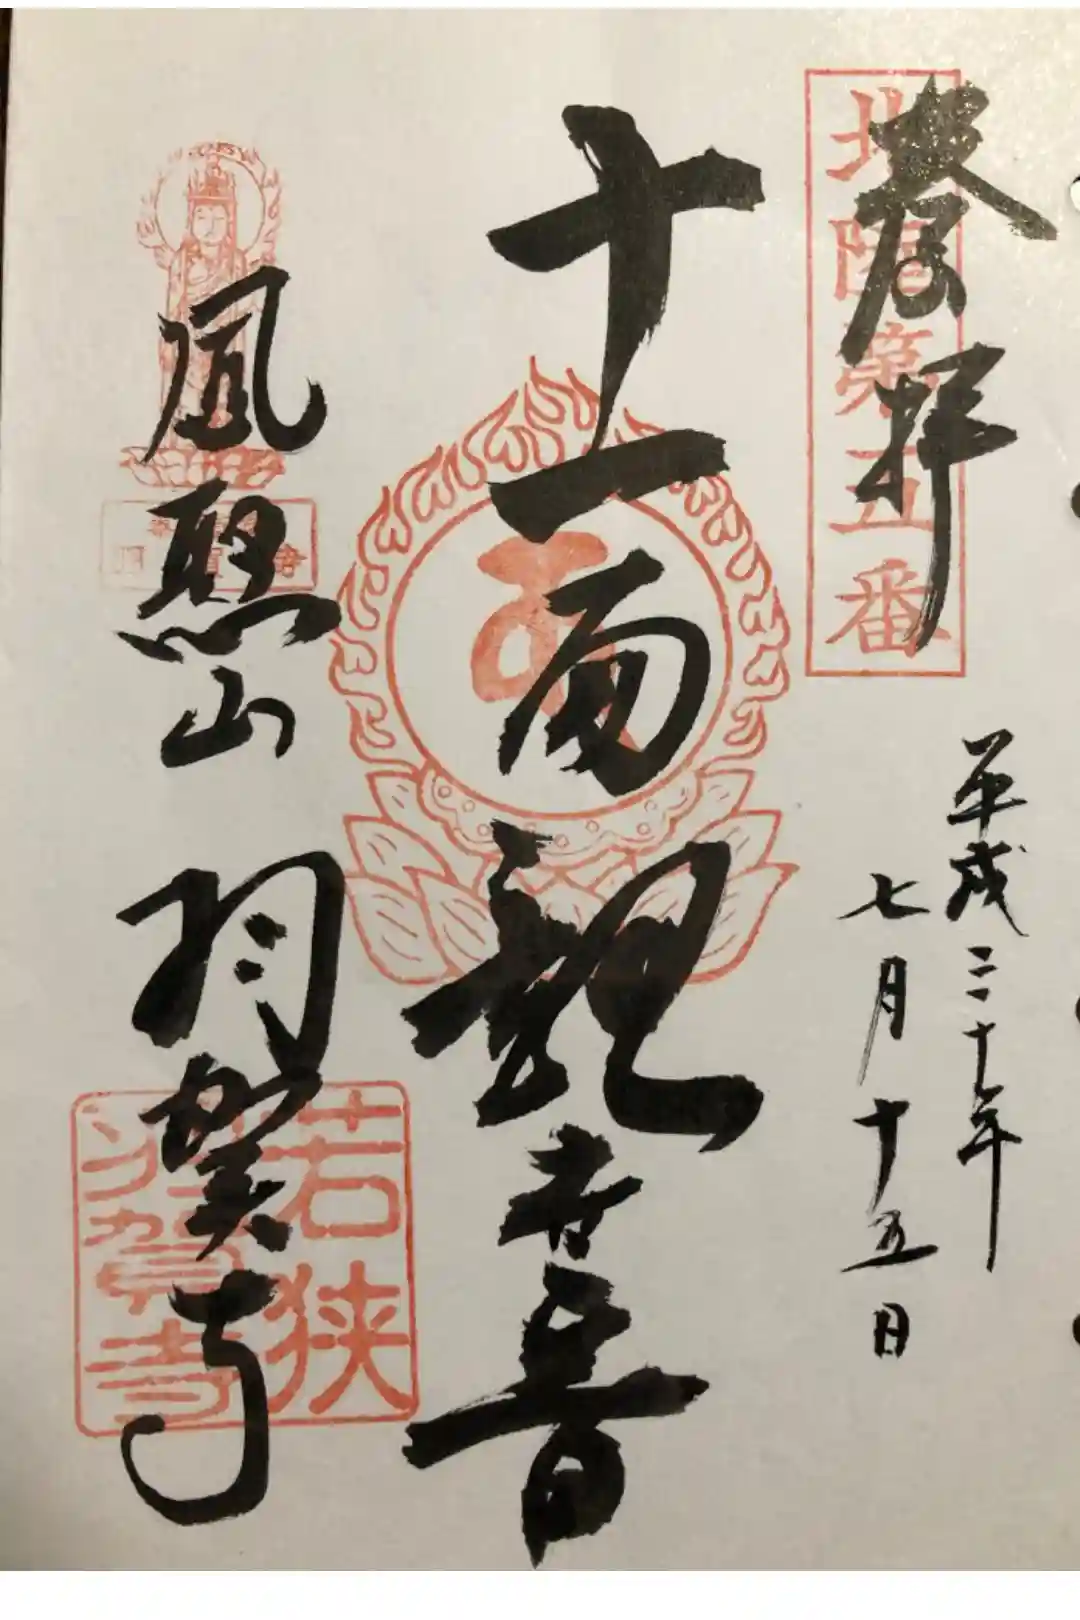 奉拝
北陸第五番
平成二十年
七月十五日
十一面観世音
鳳聚山 羽賀寺
若狭
羽賀寺